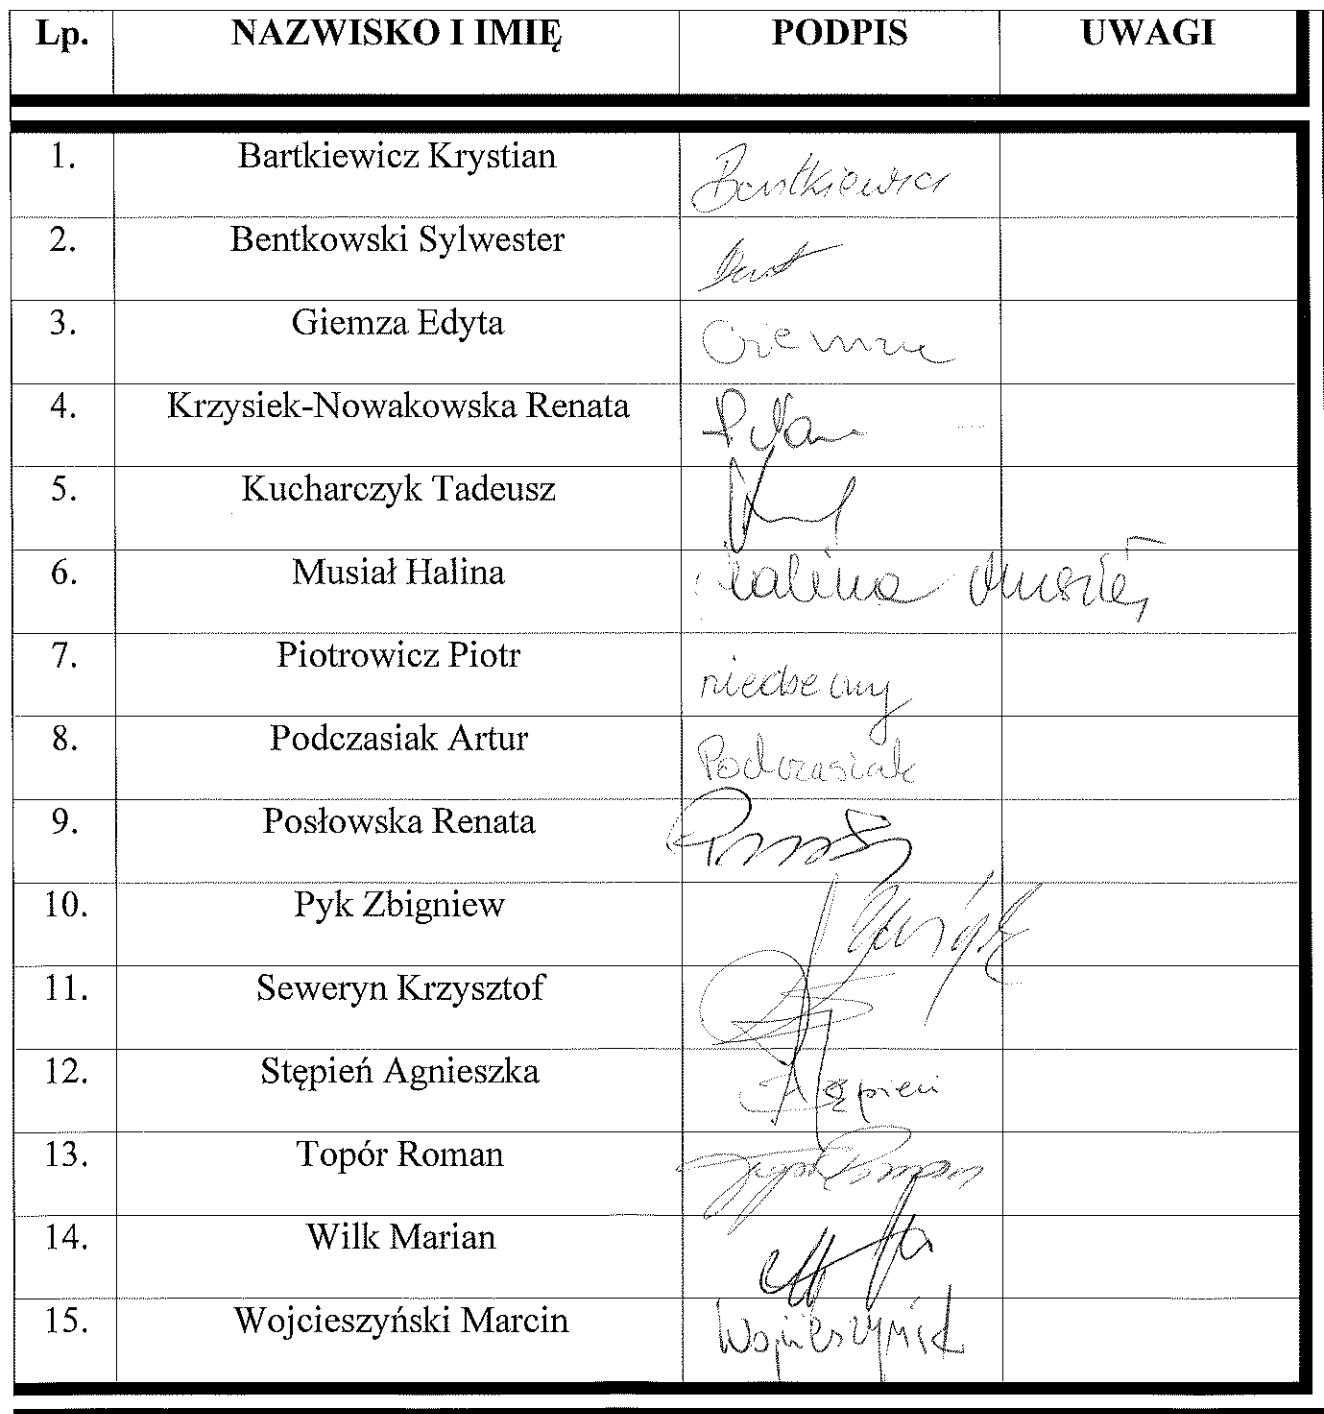 Lp. NAZWISKO I IMIĘ PODPIS UWAGI
1. Bartkiewicz Krystian Bartkiewicz
2. Bentkowski Sylwester
3. Giemza Edyta Giemza
4. Krzysiek-Nowakowska Renata
5. Kucharczyk Tadeusz
6. Musiał Halina Halina Musiał
7. Piotrowicz Piotr nieobecny
8. Podczasiak Artur Podczasiak
9. Posłowska Renata
10. Pyk Zbigniew
11. Seweryn Krzysztof
12. Stępień Agnieszka Stępień
13. Topór Roman Topór Roman
14. Wilk Marian
15. Wojcieszyński Marcin Wojcieszyński